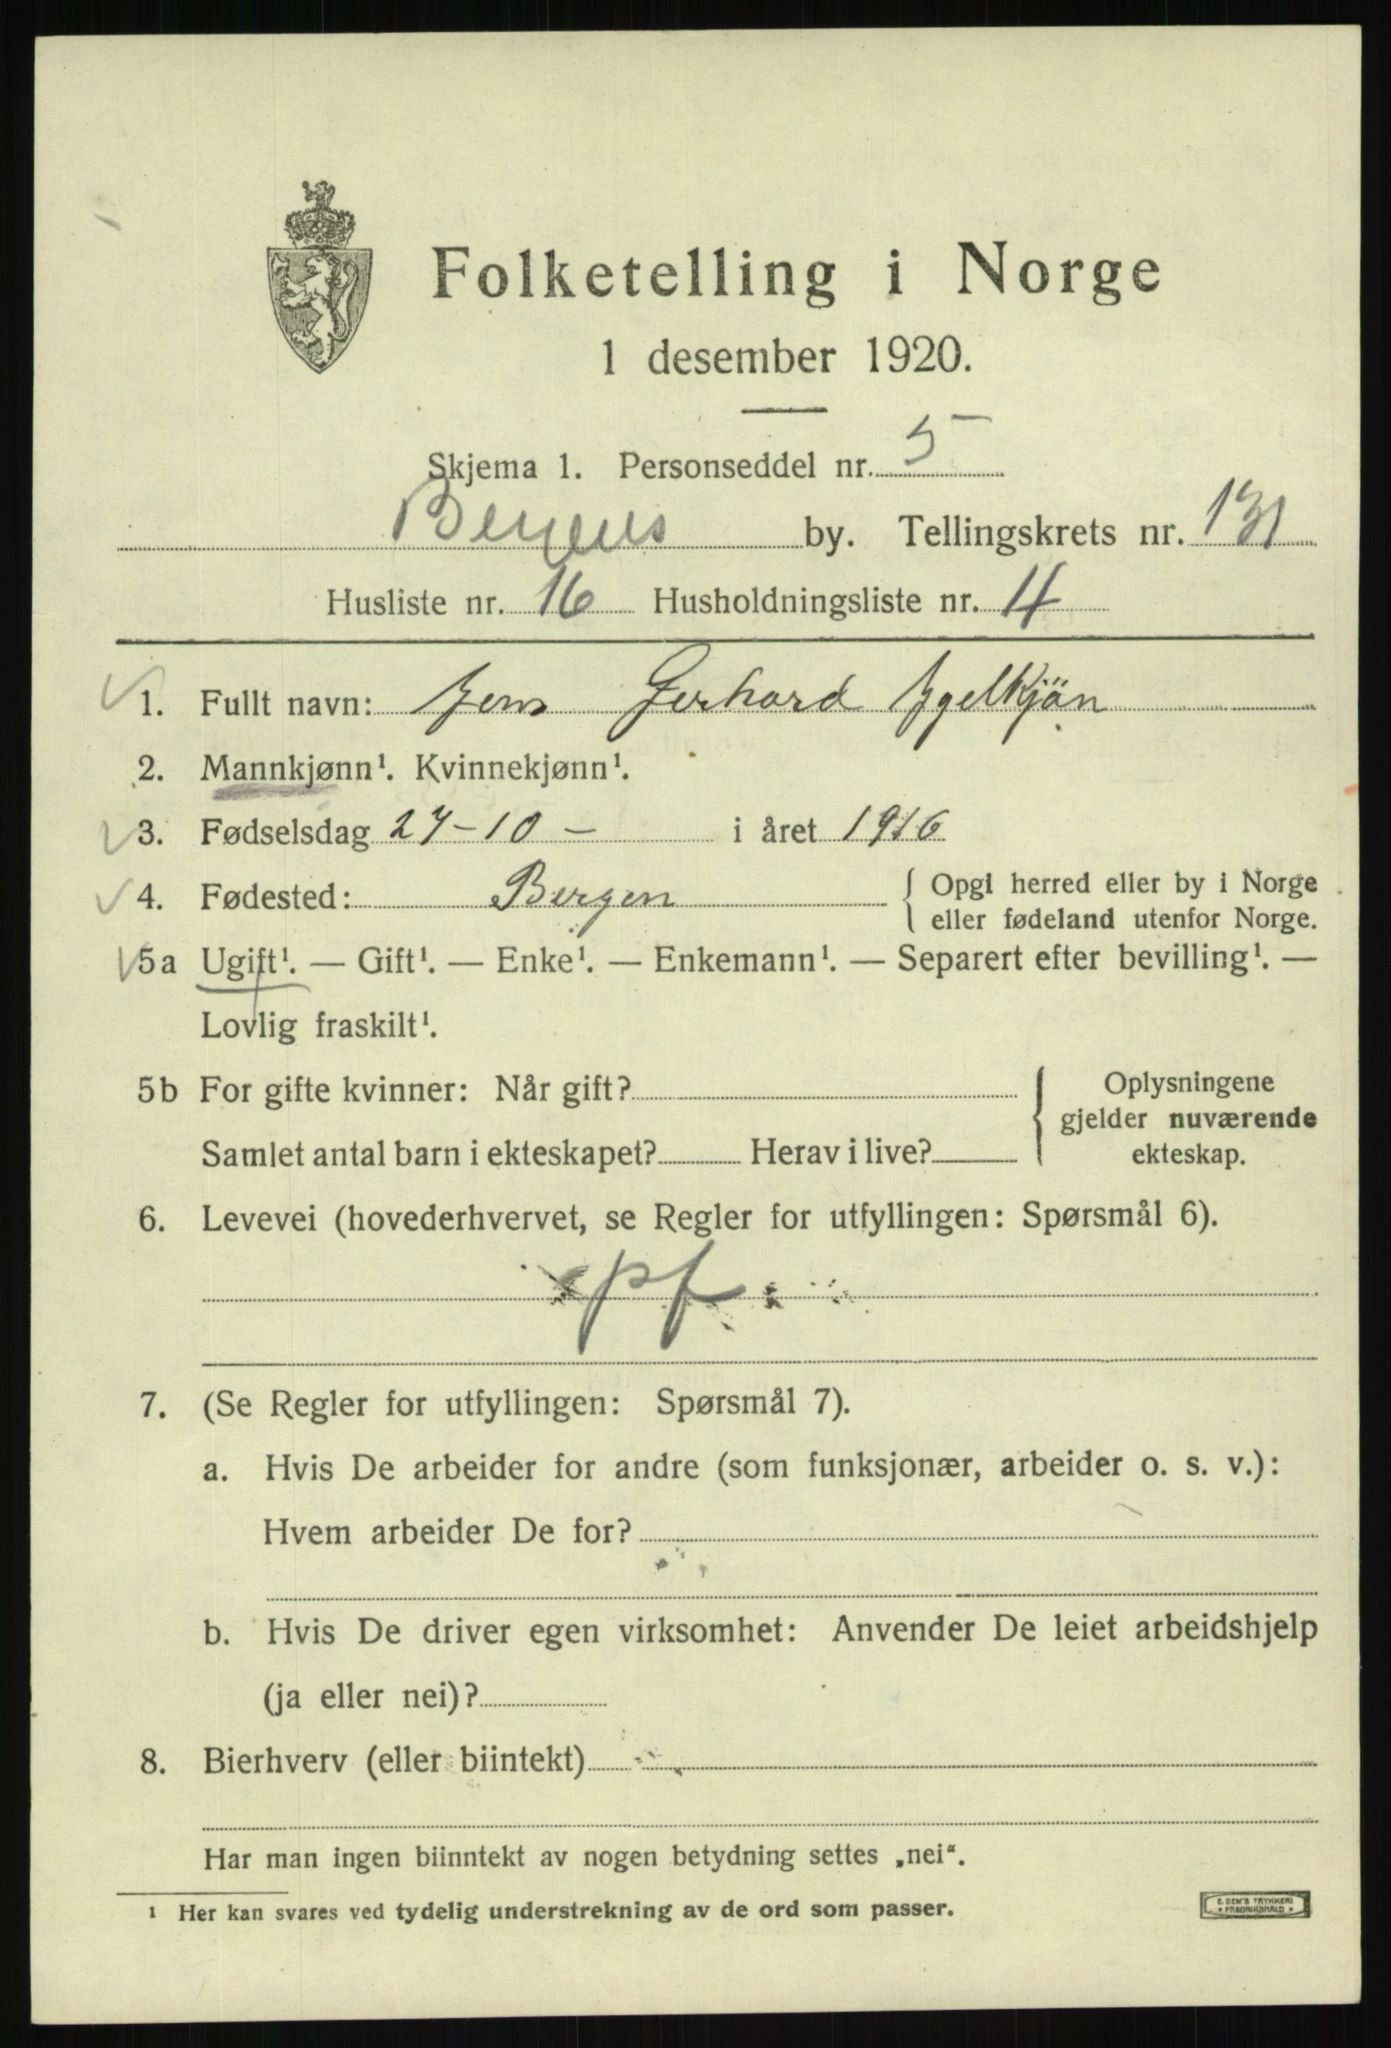 Folketelling i Norge
1 desember 1920.
Skjema 1. Personseddel nr. 5
Bergens by. Tellingskrets nr. 131
Husliste nr. 16 Husholdningsliste nr. 4
1. Fullt navn: Jens Gerhard Igelkjön
2. Mannkjønn¹. Kvinnekjønn¹.
3. Fødselsdag 27-10- i året 1916
4. Fødested: Bergen { Opgi herred eller by i Norge
eller fødeland utenfor Norge.
5a Ugift¹. — Gift¹. — Enke¹. — Enkemann¹. — Separert efter bevilling¹. —
Lovlig fraskilt¹.
5b For gifte kvinner: Når gift? { Oplysningene
gjelder nuværende
Samlet antal barn i ekteskapet? Herav i live? ekteskap.
6. Levevei (hovederhvervet, se Regler for utfyllingen: Spørsmål 6).
pf
7. (Se Regler for utfyllingen: Spørsmål 7).
a. Hvis De arbeider for andre (som funksjonær, arbeider o. s. v.):
Hvem arbeider De for?
b. Hvis De driver egen virksomhet: Anvender De leiet arbeidshjelp
(ja eller nei)?
8. Bierhverv (eller biintekt)
Har man ingen biinntekt av nogen betydning settes „nei“.
¹ Her kan svares ved tydelig understrekning av de ord som passer.
E. SEM'S TRYKKERI
FREDRIKSHALD